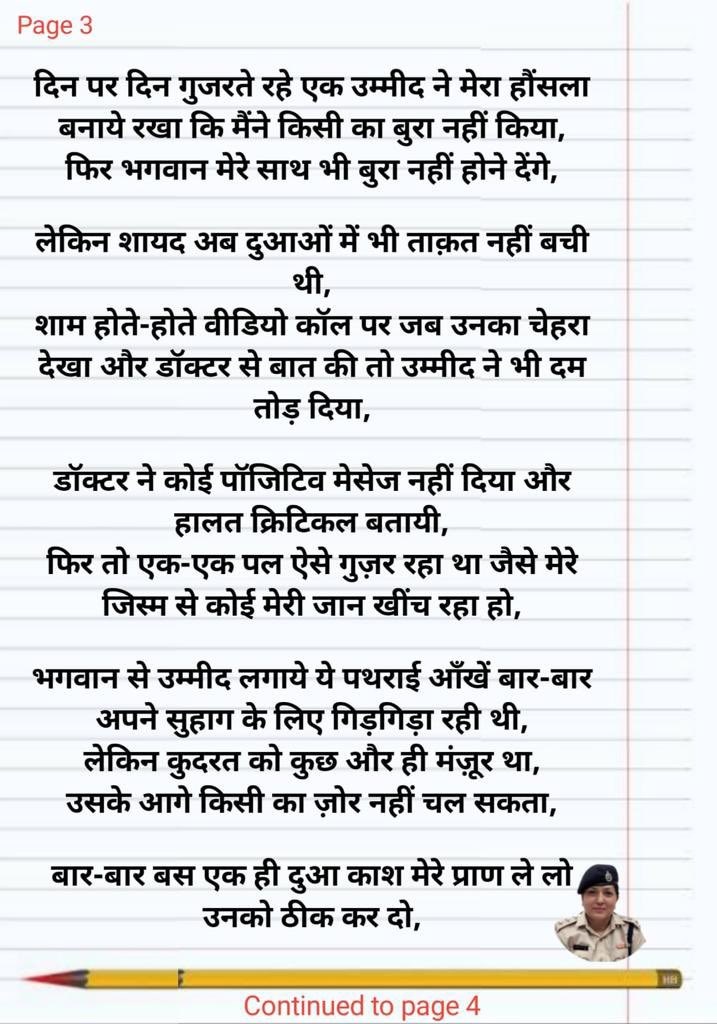 Page 3
दिन पर दिन गुजरते रहे एक उम्मीद ने मेरा हौंसला
बनाये रखा कि मैंने किसी का बुरा नहीं किया,
फिर भगवान मेरे साथ भी बुरा नहीं होने देंगे,
लेकिन शायद अब दुआओं में भी ताक़त नहीं बची
थी,
शाम होते-होते वीडियो कॉल पर जब उनका चेहरा
देखा और डॉक्टर से बात की तो उम्मीद ने भी दम
तोड़ दिया,
डॉक्टर ने कोई पॉजिटिव मेसेज नहीं दिया और
हालत क्रिटिकल बतायी,
फिर तो एक-एक पल ऐसे गुज़र रहा था जैसे मेरे
जिस्म से कोई मेरी जान खींच रहा हो,
भगवान से उम्मीद लगाये ये पथराई आँखें बार-बार
अपने सुहाग के लिए गिड़गिड़ा रही थी,
लेकिन कुदरत को कुछ और ही मंज़ूर था,
उसके आगे किसी का ज़ोर नहीं चल सकता,
बार-बार बस एक ही दुआ काश मेरे प्राण ले लो
उनको ठीक कर दो,
HB
Continued to page 4